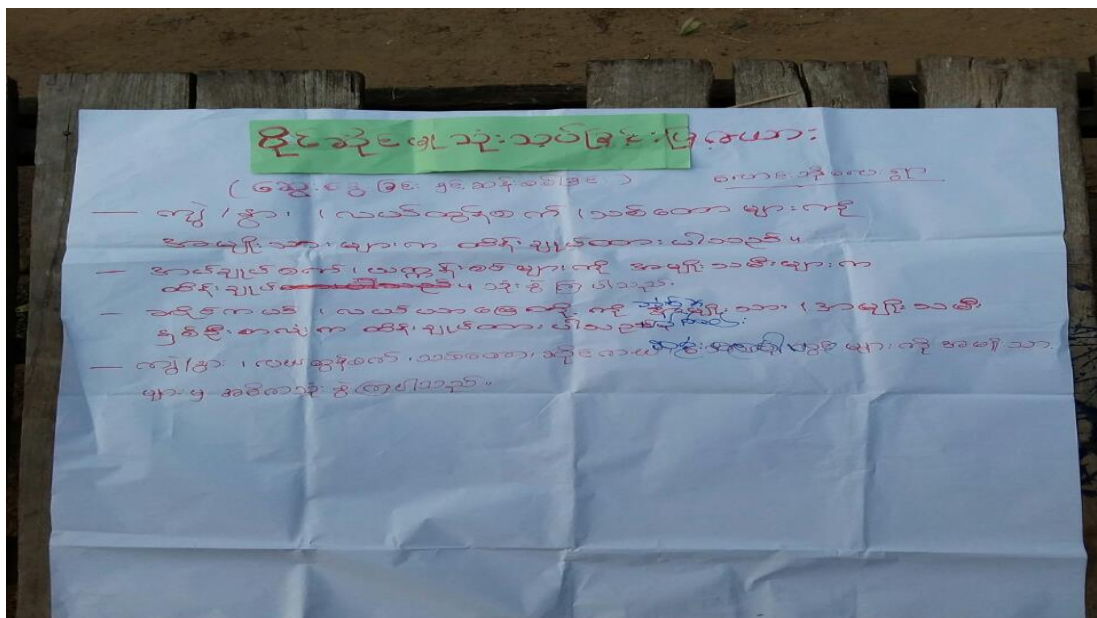 ပိုင်ဆိုင်မှု သုံးသပ်ခြင်းပြဇယား
(ဆွေးနွေးခြင်း နှင့် ဆန်းစစ်ခြင်း)
— ကျွဲ/နွား၊ လယ်ထွန်စက်၊ သစ်တော များကို
အမျိုးသားများက ထိန်းချုပ်ထားပါသည်။
— အပ်ချုပ်စက်၊ ယက္ကန်းစင်များကို အမျိုးသမီးများက
ထိန်းချုပ် သုံးစွဲကြပါသည်။
— လယ်ယာမြေ ကို အမျိုးသား/အမျိုးသမီး
နှစ်ဦးစလုံးက ထိန်းချုပ်ထားပါသည်
— ကျွဲ/နွား၊ လယ်ထွန်စက်၊ သစ်တော၊ များကို အမျိုးသား
များမှ အဓိကသုံးစွဲကြပါသည်။